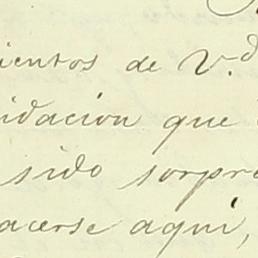 ientos de V.d
idacion que
sido sorpre
acerse aqui,